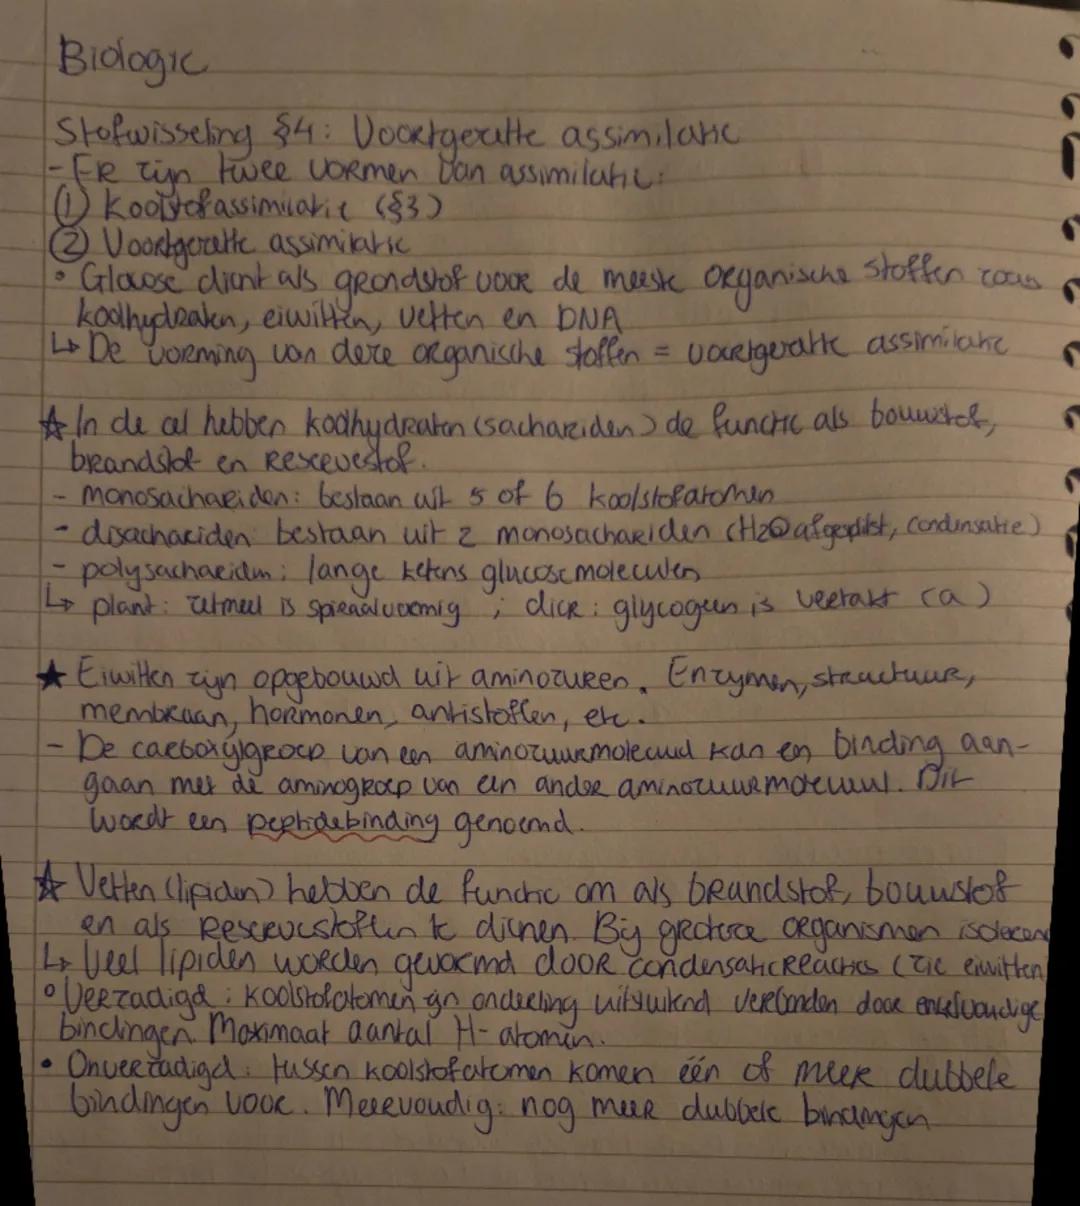 Biologie
Stofwisseling §4: Voortgezette assimilatie
- Er zijn twee vormen van assimilatie:
① Koolstofassimilatie (§3)
② Voortgezette assimilatie
• Glucose dient als grondstof voor de meeste organische stoffen zoals
koolhydraten, eiwitten, vetten en DNA
↳ De vorming van deze organische stoffen = voortgezette assimilatie
☆ In de cel hebben koolhydraten (sachariden) de functie als bouwstof,
brandstof en reservestof.
- monosachariden: bestaan uit 5 of 6 koolstofatomen
- disachariden: bestaan uit 2 monosachariden (H2O afgesplitst, condensatie)
- polysachariden: lange ketens glucosemoleculen
↳ plant: zetmeel is spiraalvormig ; dier: glycogeen is vertakt (a)
★ Eiwitten zijn opgebouwd uit aminozuren. Enzymen, structuur,
membraan, hormonen, antistoffen, etc.
- De carboxylgroep van een aminozuurmolecuul kan en binding aan-
gaan met de aminogroep van een ander aminozuurmolecuul. Dit
wordt een peptidebinding genoemd.
☆ Vetten (lipiden) hebben de functie om als brandstof, bouwstof
en als reservestoffen te dienen. Bij grotere organismen isoleren
↳ Veel lipiden worden gevormd door condensatiereacties (zie eiwitten
• Verzadigd: koolstofatomen zijn onderling uitsluitend verbonden door enkelvoudige
bindingen. Maximaal aantal H-atomen.
• Onverzadigd: tussen koolstofatomen komen één of meer dubbele
bindingen voor. Meervoudig: nog meer dubbele bindingen